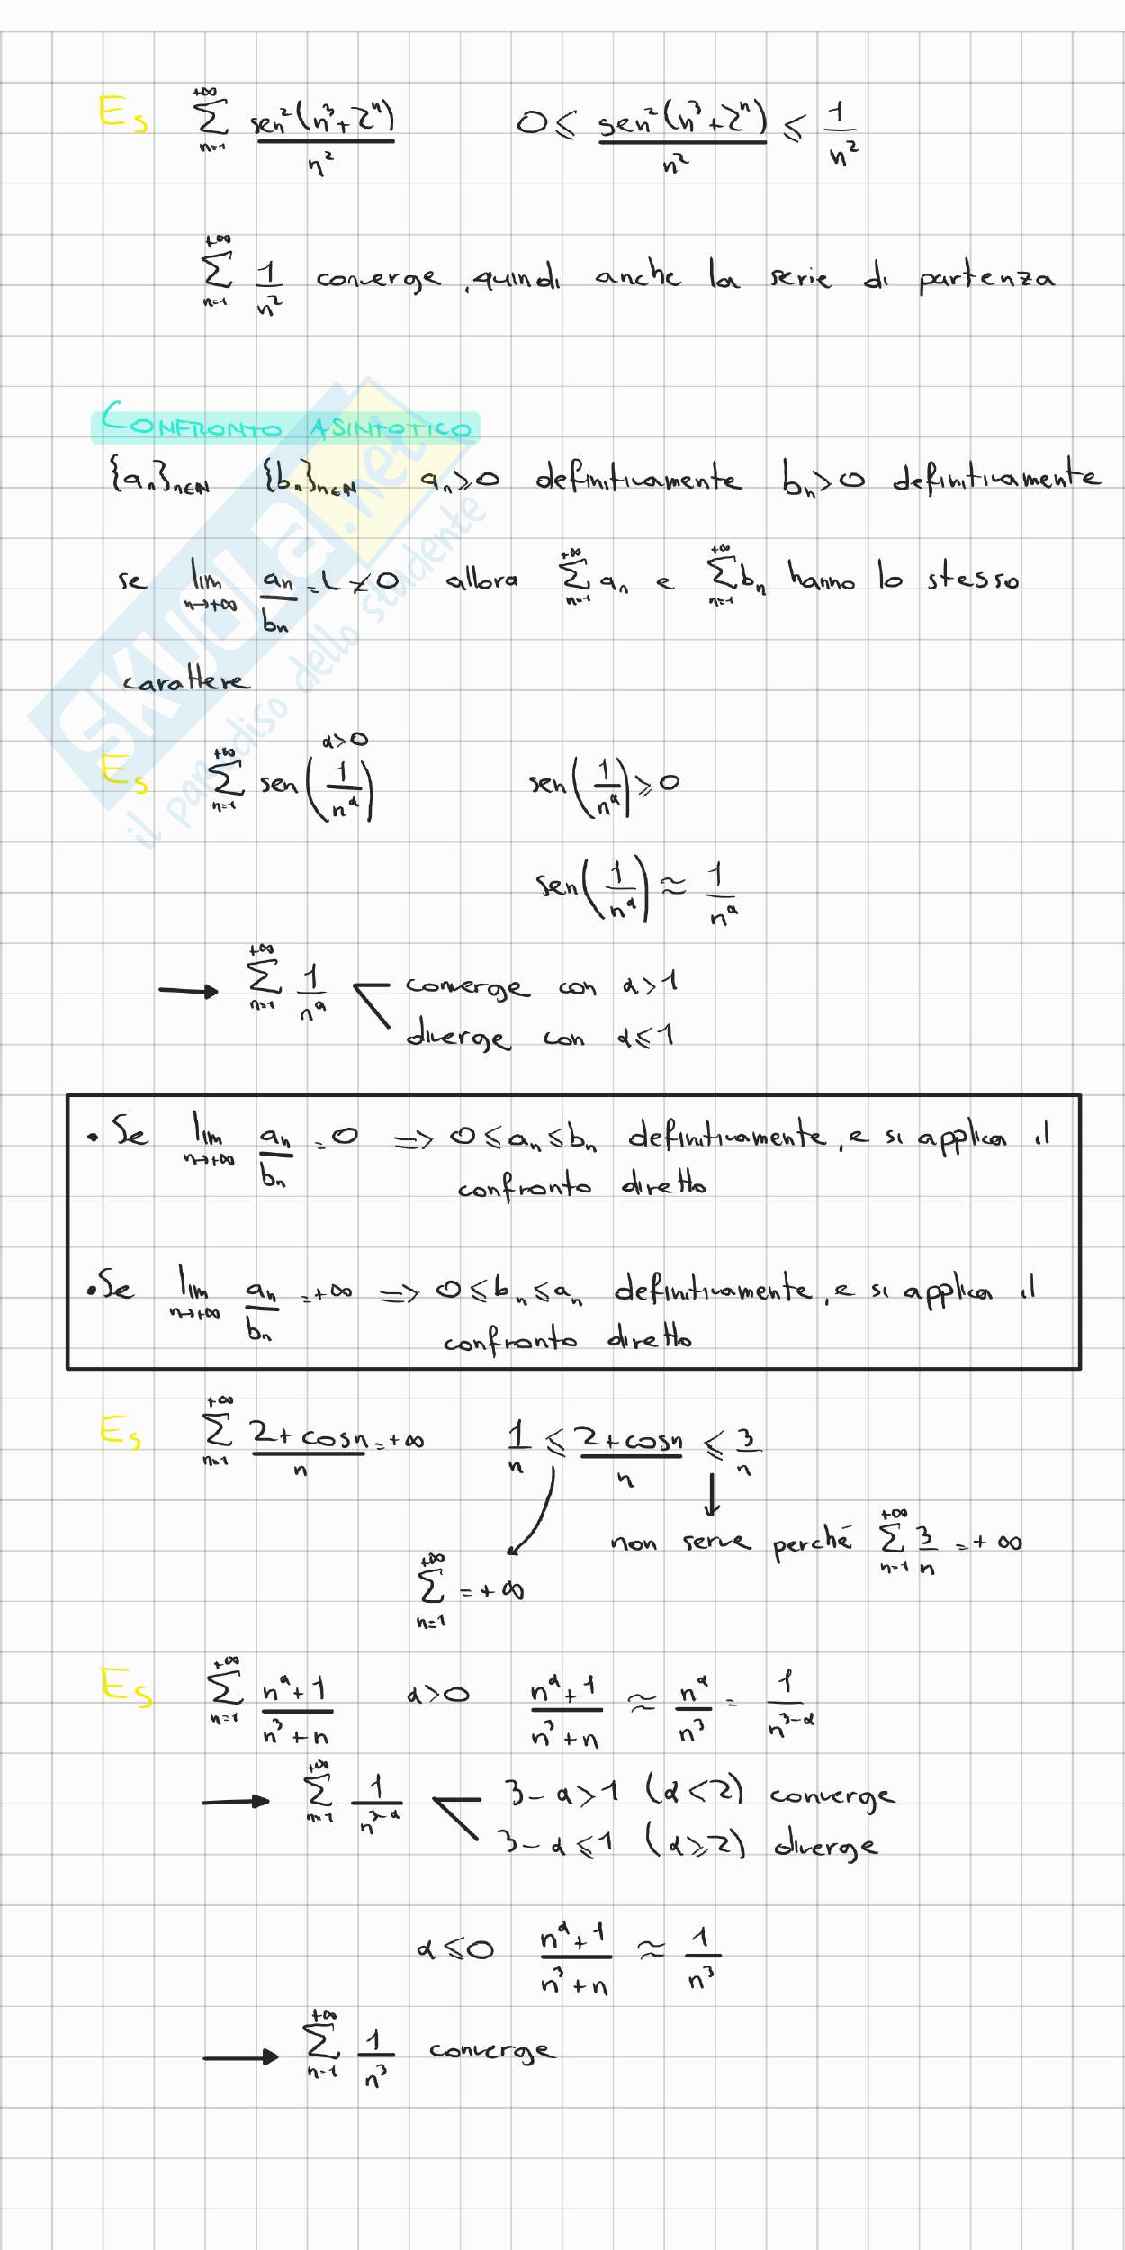 Es ∑_{n=1}^{+∞} sen²(n³+2ⁿ)/n²   0 ≤ sen²(n³+2ⁿ)/n² ≤ 1/n²
∑_{n=1}^{+∞} 1/n² converge, quindi anche la serie di partenza
CONFRONTO ASINTOTICO
{aₙ}_{n∈ℕ} {bₙ}_{n∈ℕ} aₙ≥0 definitivamente bₙ>0 definitivamente
se lim_{n→+∞} aₙ/bₙ = L ≠ 0 allora ∑_{n=1}^{+∞} aₙ e ∑_{n=1}^{+∞} bₙ hanno lo stesso
carattere
Es ∑_{n=1}^{+∞} sen(1/n^α) α>0   sen(1/n^α) ≥ 0
sen(1/n^α) ≈ 1/n^α
→ ∑_{n=1}^{+∞} 1/n^α converge con α>1
diverge con α≤1
• Se lim_{n→+∞} aₙ/bₙ = 0 => 0≤aₙ≤bₙ definitivamente, e si applica il
confronto diretto
• Se lim_{n→+∞} aₙ/bₙ = +∞ => 0≤bₙ≤aₙ definitivamente, e si applica il
confronto diretto
Es ∑_{n=1}^{+∞} (2+cosn)/n = +∞   1/n ≤ (2+cosn)/n ≤ 3/n
non serve perché ∑_{n=1}^{+∞} 3/n = +∞
∑_{n=1}^{+∞} = +∞
Es ∑_{n=1}^{+∞} (n^α+1)/(n³+n)   α>0   (n^α+1)/(n³+n) ≈ n^α/n³ = 1/n^{3-α}
→ ∑_{n=1}^{+∞} 1/n^{3-α} 3-α>1 (α<2) converge
3-α≤1 (α≥2) diverge
α≤0 (n^α+1)/(n³+n) ≈ 1/n³
→ ∑_{n=1}^{+∞} 1/n³ converge
SKUOLA.net
il paradiso dello studente